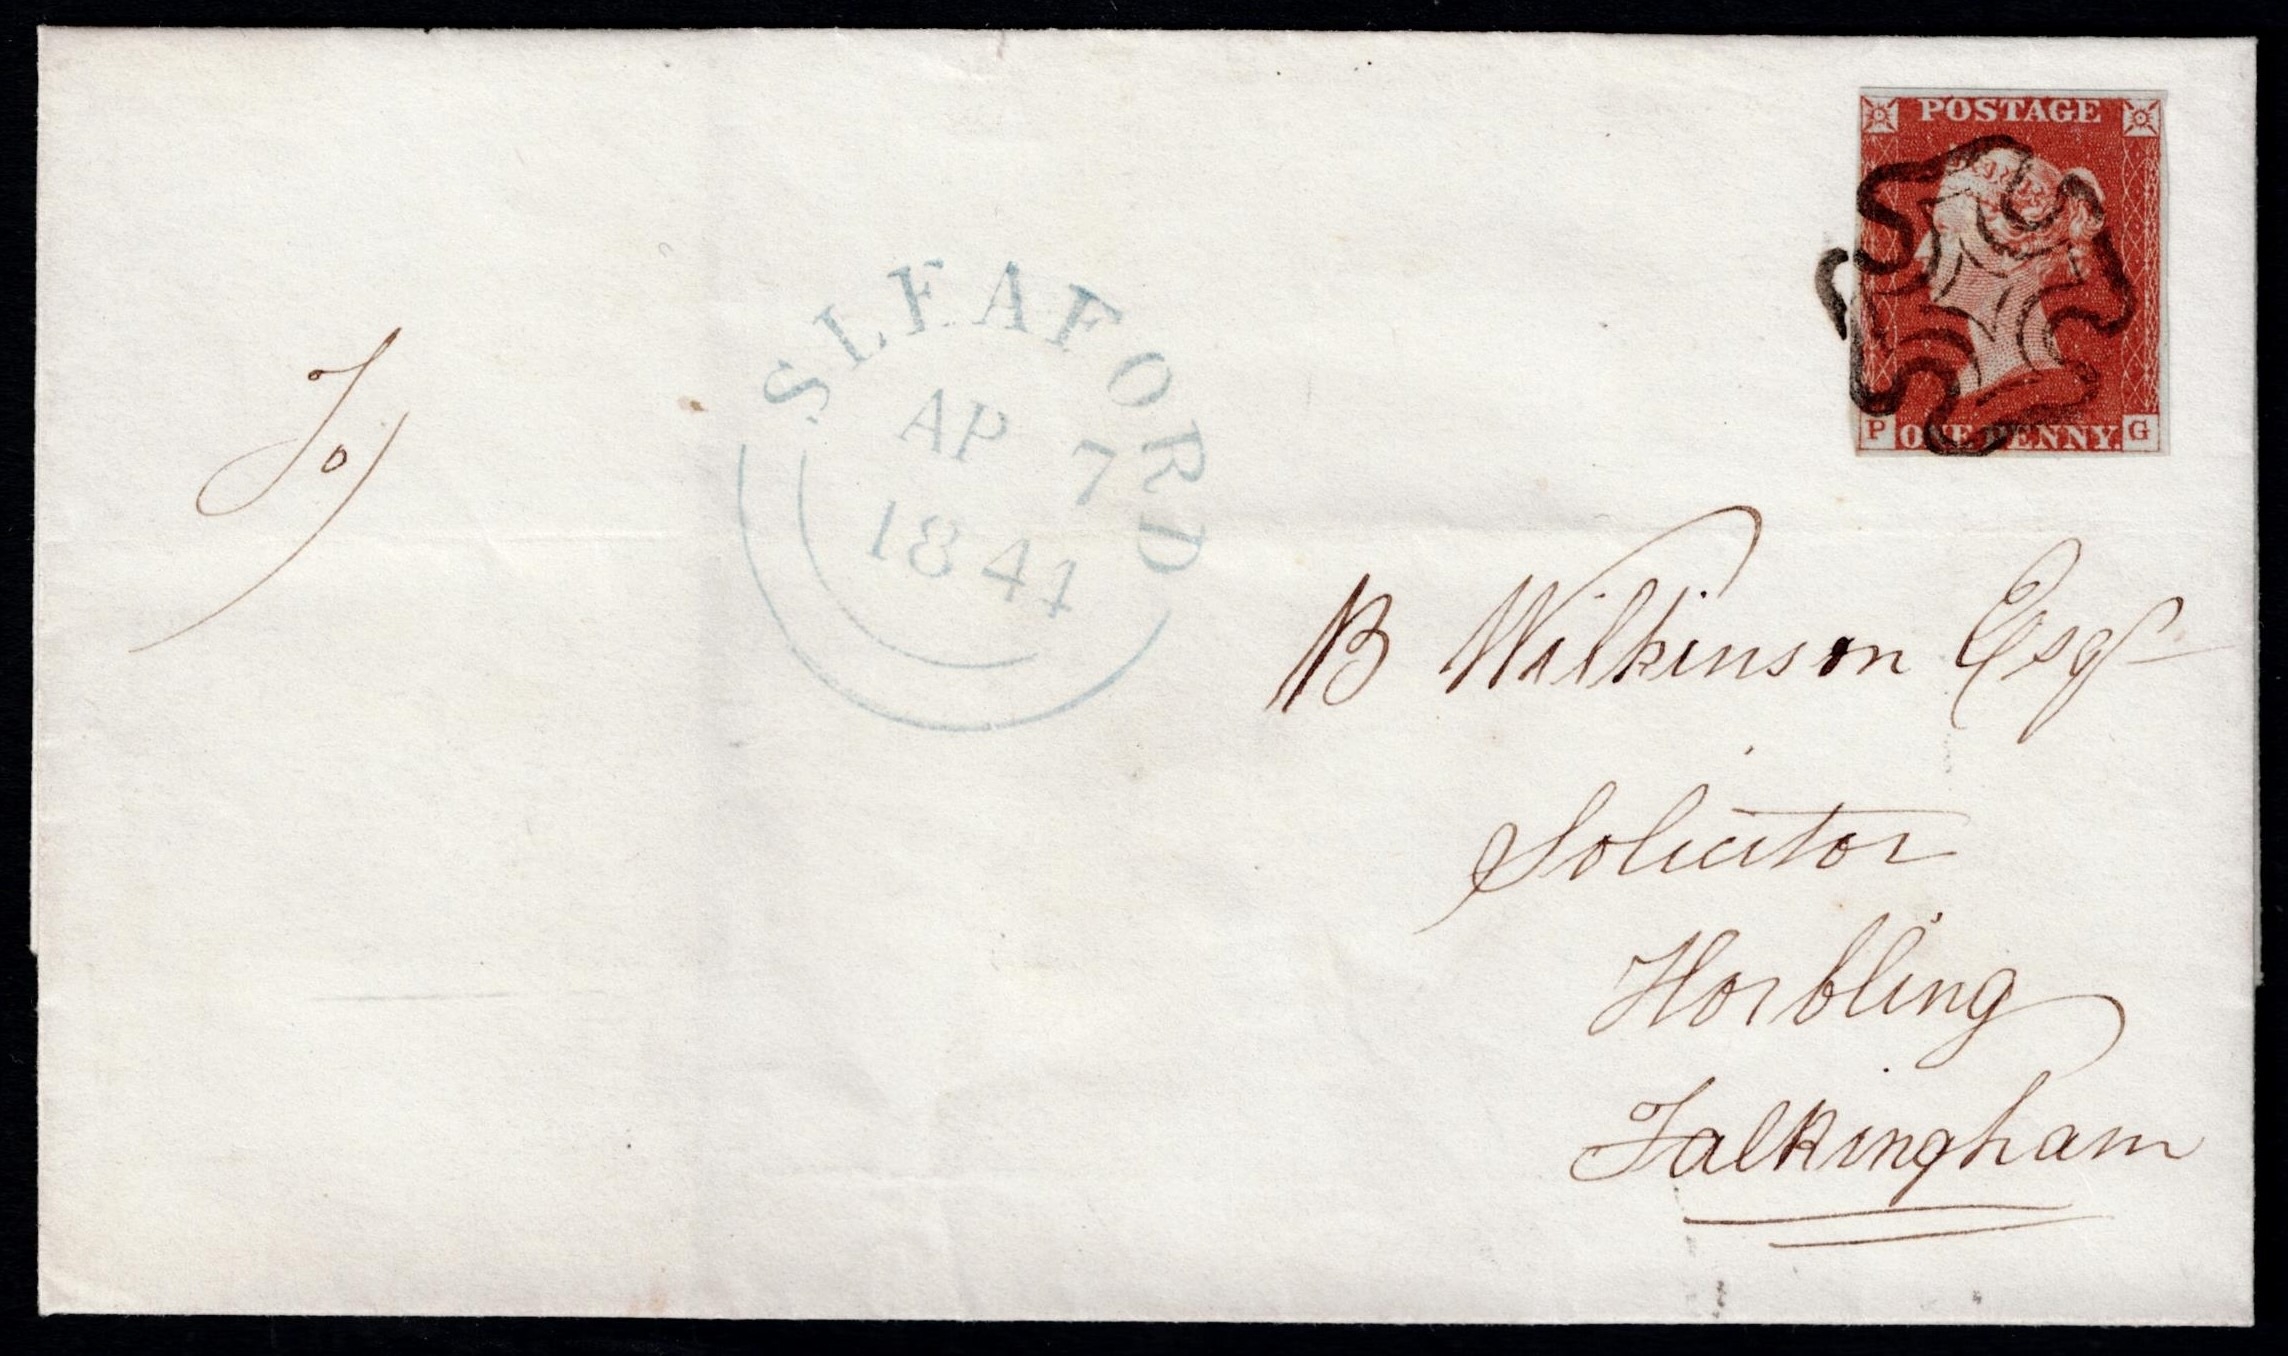 POSTAGE
P ONE PENNY. G
SLEAFORD
AP 7
1844
To
B Wilkinson Esqr
Solicitor
Horbling
Falkingham